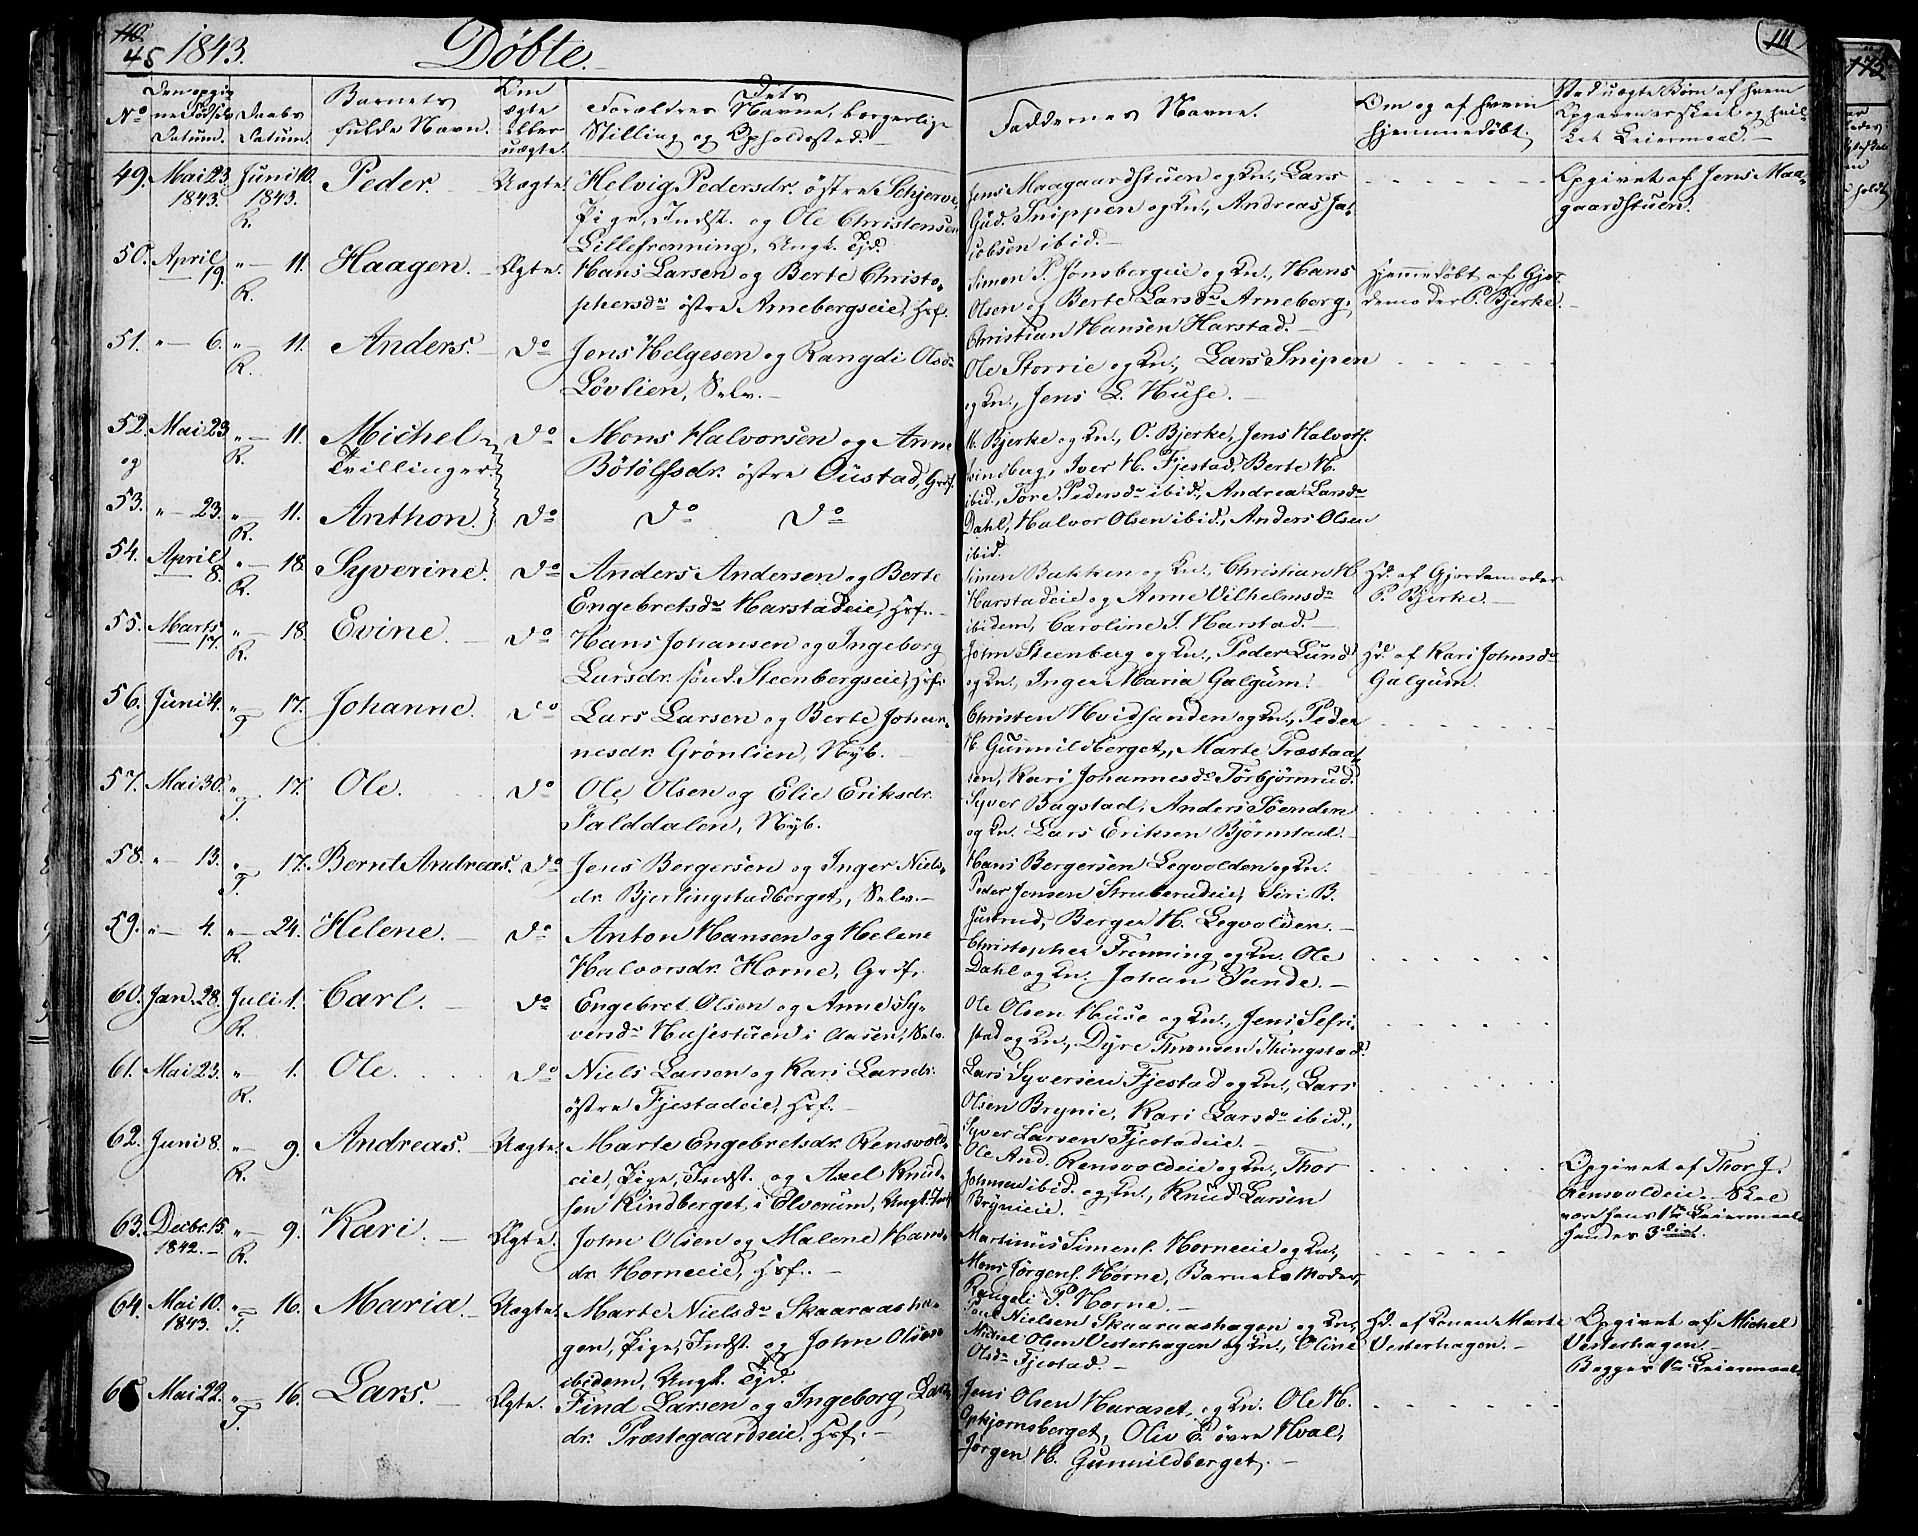 45 1843. Döbte. 111
No Datum. Daabs Datum. Barnets fulde Navn. Om ægte eller uægte. Forældres Navne, borgerlige Stilling og Opholdssted. Faddernes Navne. Om og af hvem hjemmedöbt.
49. Mai 23. 1843. Juni 10. 1843. R. Peder. Uægte. Helvig Pedersdr. östre Schjerve,
Pige, Indst. og Ole Christensen
Lillefrenning, Ungk. Tjd.
Jens Maagaardstuen og Kn., Lars
Gud. Snippen og Kn., Andreas Ja-
cobsen ibid.
Opgivet af Jens Maa-
gaardstuen.
50. April 19. " 11. R. Haagen. Ægte. Hans Larsen og Berte Christo-
phersdr östre Arnebergseie, Hsf.
Simen P. Jønsbergeie og Kn., Hans
Olsen og Berte Larsdr Arneberg,
Christian Hansen Harstad.
Hjemmedöbt af Gjor-
demoder P. Bjerke.
51. " 6. " 11. R. Anders. Do Jens Helgesen og Rangdi Olsdr
Lövlien, Selv.
Ole Storrie og Kn., Lars Snipen
og Kn., Jens L. Huse.
52. Mai 23. " 11. R. Michel Do Mons Halvorsen og Anne
og Tvillinger Bötölfsdr. östre Oustad, Grdf.
M. Bjerke og Kn., O. Bjerke, Jens Halvors.
Svindberg, Iver H. Fjestad, Berte H.
ibid., Tore Pedersdr ibid., Andrea Larsdr
53. " 23. " 11. R. Anthon. Do Do Do
Dahl, Halvor Olsen ibid., Anders Olsen
ibid.
54. April 8. " 18. R. Syverine. Do Anders Andersen og Berte
Engebretsdr Harstadeie, Hsf.
Simen Bakken og Kn., Christian H.
Harstadeie og Anne Vilhelmsdr
ibidem, Caroline J. Harstad.
Hd. af Gjordemoder
P. Bjerke.
55. Marts 17. " 18. R. Evine. Do Hans Johansen og Ingeborg
Larsdr. sönd. Steenbergseie, Hsf.
John Steenberg og Kn., Peder Lund
og Kn., Inger Maria Galgum.
Hd. af Kari Johnsdr
Galgum.
56. Juni 4. " 17. T. Johanne. Do Lars Larsen og Berte Johan-
nesdr. Grönlien, Nyb.
Christen Hvidsanden og Kn., Peder
H. Gunnildberget, Marte Præstaat
en, Kari Johannesdr Torbjörnrud.
57. Mai 30. " 17. T. Ole. Do Ole Olsen og Elie Eriksdr.
Falddalen, Nyb.
Syver Bagstad, Anders Söenden
og Kn. Lars Eriksen Björnstad.
58. " 13. " 17. T. Bernt Andreas. Do Jens Bergersen og Inger Niels-
dr. Bjerlingstadberget, Selv.
Hans Bergersen Legvolden og Kn.
Peder Jensen Struberudeie, Siri B.
Justrud, Berger H. Legvolden.
59. " 4. " 24. R. Helene. Do Anton Hansen og Helene
Halvorsdr. Horne, Grdf.
Christopher Frenning og Kn. Ole
Dahl og Kn. Johan Sunde.
60. Jan. 28. Juli 1. R. Carl. Do Engebret Olsen og Anne Sy-
versdr Husestuen i Aasen, Selv.
Ole Olsen Huse og Kn., Jens Sefri-
stad og Kn., Dyre Thronsen Thingstad.
61. Mai 23. " 1. R. Ole. Do Niels Larsen og Kari Larsdr.
östre Fjestadeie, Hsf.
Lars Syversen Fjestad og Kn., Lars
Olsen Brynie, Kari Larsdr ibid.,
Syver Larsen Fjestadeie.
62. Juni 8. " 9. R. Andreas. Uægte. Marte Engebretsdr. Rensvold-
eie, Pige, Indst. og Axel Knud-
sen Kindberget i Elverum, Ungk. Inds
Ole And. Rensvoldeie og Kn., Thor
Johnsen ibid. og Kn., Knud Larsen
Brynieie.
Opgivet af Thor J.
Rensvoldeie. Skal
være hans 1ste Leiermaal,
hendes 3die.
63. Decbr. 15. 1842. " 9. R. Kari. Ægte. John Olsen og Malene Hans-
dr. Horneeie, Hsf.
Martinus Simens. Horneeie og Kn.,
Mons Jörgens. Horne, Barnets Moder,
Rangdi P. Horne.
64. Mai 10. 1843. " 16. T. Maria. Uægte. Marte Nielsdr Skaaraasha-
gen, Pige, Indst. og John Olsen
ibidem, Ungk. Tjd.
Poul Nielsen Skaaraashagen og Kn.,
Michel Olsen Vesterhagen og Kn., Oline
Olsdr Fjestad.
Hd. af Konen Marte
Vesterhagen.
Opgivet af Michel
Vesterhagen.
Begges 1ste Leiermaal.
65 Mai 22. " 16. T. Lars. Ægte. Find Larsen og Ingeborg Lars-
dr. Præstegaardseie, Hsf.
Jens Olsen Haraset og Kn. Ole H.
Opkjörnsberget, Oliv E. övre Hval,
Jörgen H. Gunnildberget.